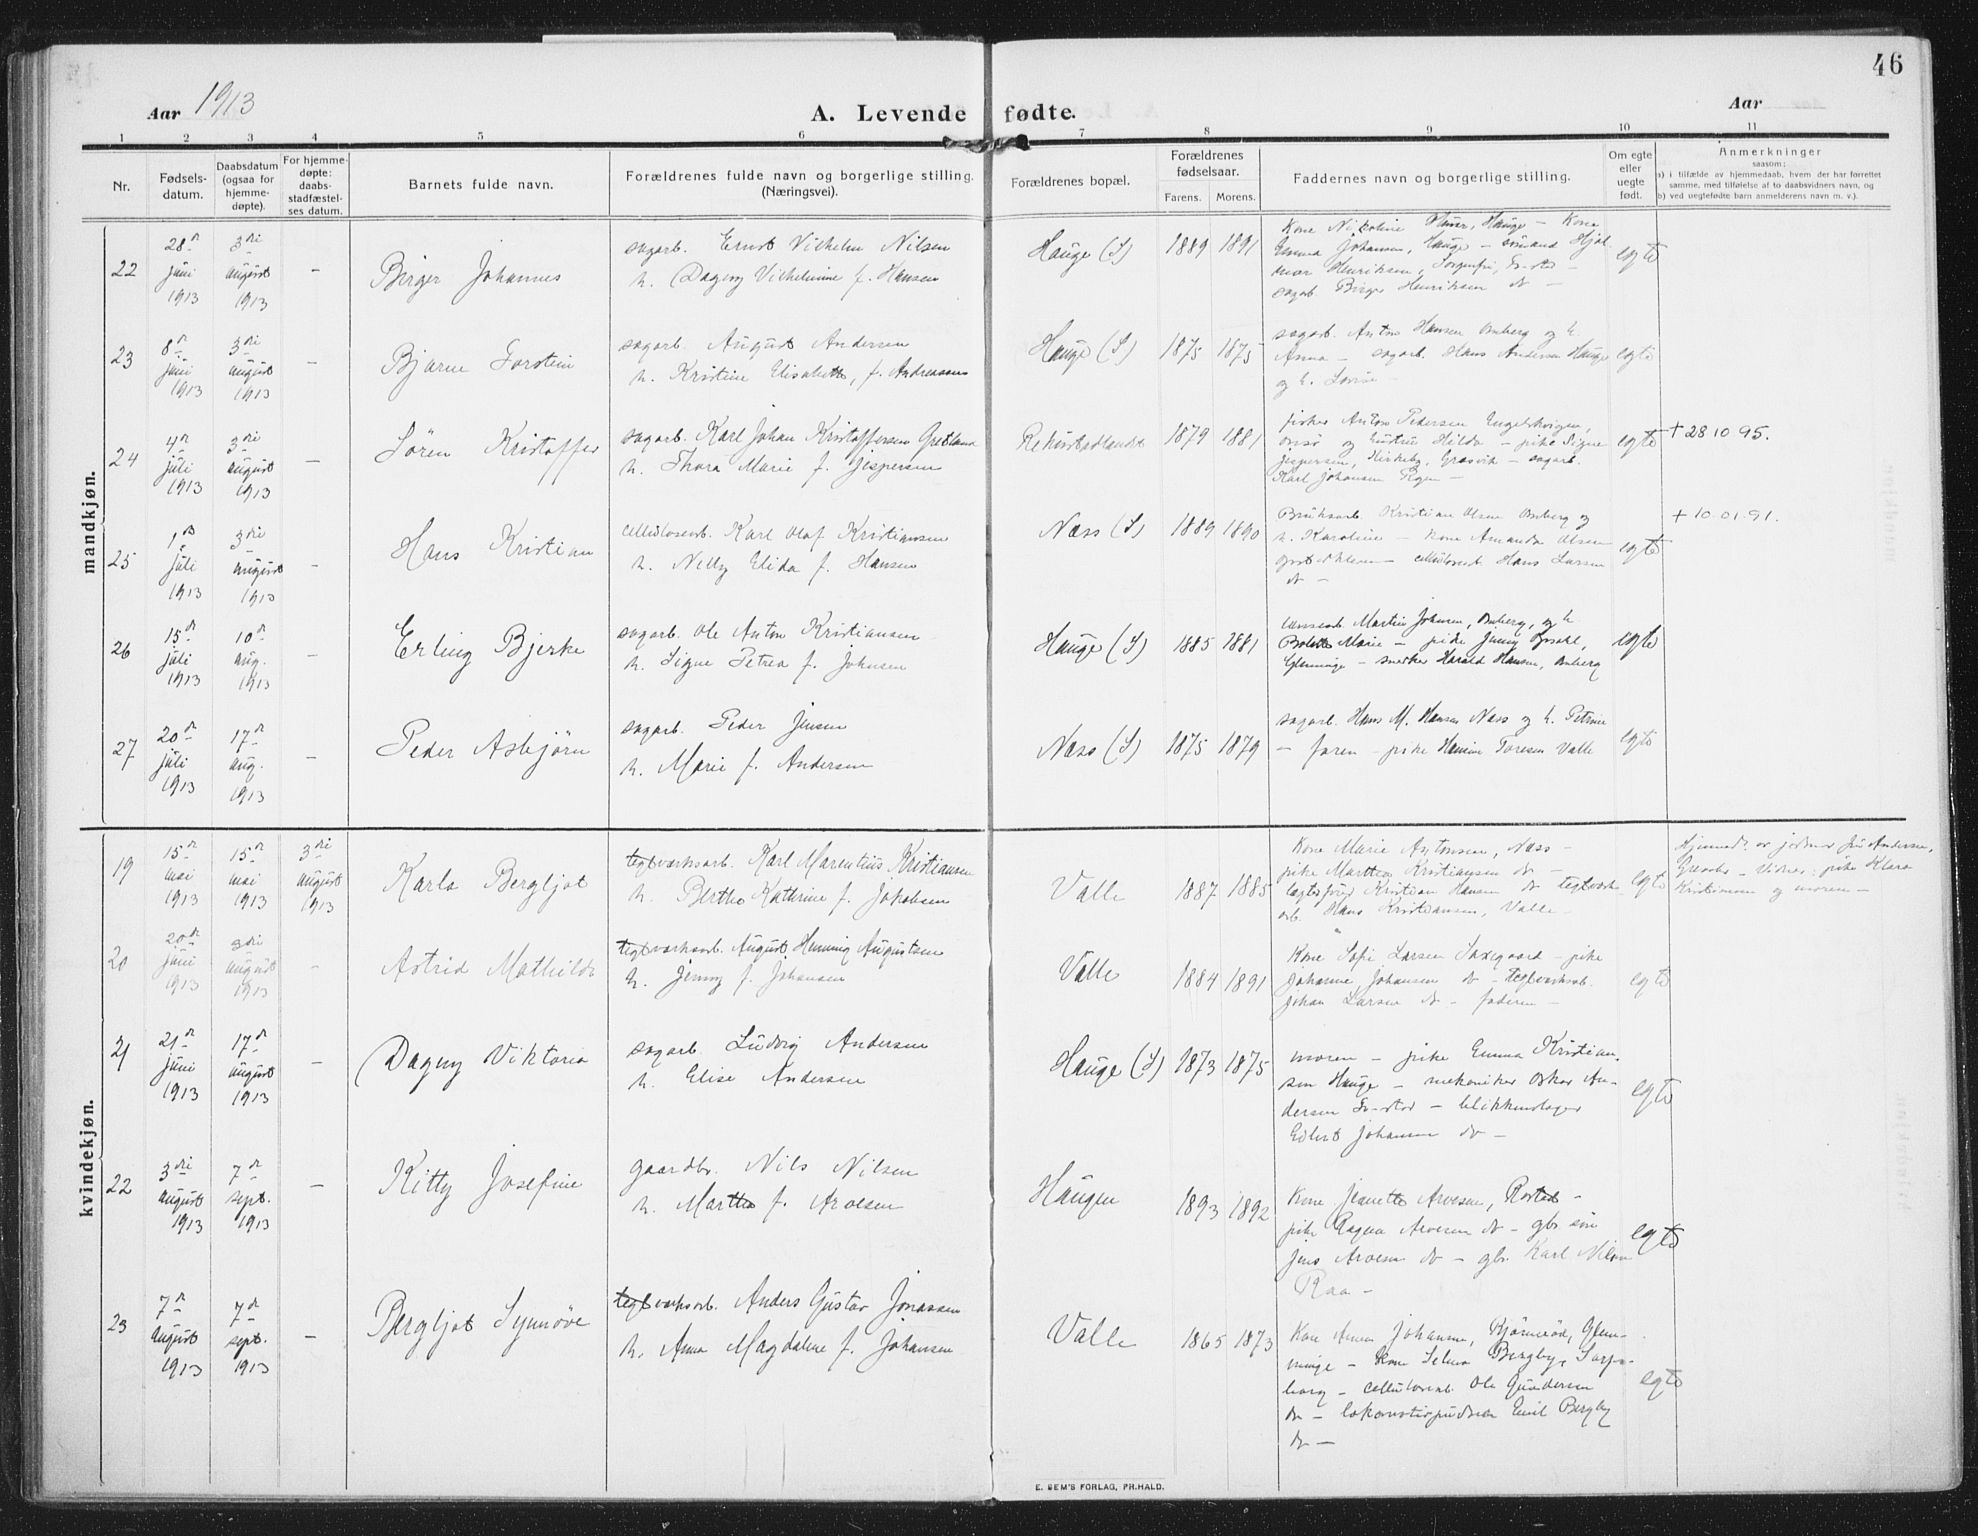 46
Aar 1913
A. Levende fødte.
Aar
1 2 3 4 5 6 7 8 9 10 11
Nr.
Fødsels-
datum.
Daabsdatum
(ogsaa for
hjemme-
døpte).
For hjemme-
døpte:
daabs-
stadfæstel-
ses datum.
Barnets fulde navn.
Forældrenes fulde navn og borgerlige stilling.
(Næringsvei).
Forældrenes bopæl.
Forældrenes
fødselsaar.
Farens. Morens.
Faddernes navn og borgerlige stilling.
Om egte
eller
uegte
født.
Anmerkninger
saasom:
a) i tilfælde av hjemmedaab, hvem der har forrettet
samme, med tilføielse af to daabsvidners navn, og
b) ved uegtefødte barn anmelderens navn m. v.).
mandkjøn.
22
28de juni 1913
3die august 1913
-
Birger Johannes
sagarb. Ernst Vilhelm Nilsen
h. Dagny Vilhelmine f. Hansen
Hauge (S)
1889 1891
Kone Nikoline Hauge - Kone
Emma Johansen, Hauge - sømand Hjal-
mar Henriksen, Sorgenfri, Fr-stad -
sagarb. Birger Henriksen do -
egte
23
8de juni 1913
3die august 1913
-
Bjarne Torstein
sagarb. August Andersen
h. Kristine Elisabeth, f. Andreassen
Hauge (S)
1875 1875
sagarb. Anton Hansen Omberg og h.
Anna - sagarb. Hans Andersen Hauge
og h. Lovise -
egte
24
4de juli 1913
3die august 1913
-
Sören Kristoffer
sagarb. Karl Johan Kristoffersen Gretland
h. Thora Marie f. Jespersen
1879 1881
fisker Anton Pedersen Engelskvigen,
onsø og hustru Hilda - pike Signe
Jespersen, Kirkeby, Gresvik - sagarb.
Karl Johansen -
egte
+ 28 10 95.
25
1ste juli 1913
3die august 1913
-
Hans Kristian
cellulosearb. Karl Olaf Kristiansen
h. Nelly Elida f. Hansen
Næss (S)
1889 1890
Bruksarb. Kristian Olsen Omberg og
h. Karoline - kone Amanda Olsen
- cellulosearb. Hans Larsen
do -
egte
+ 10.01.91.
26
15de juli 1913
10de aug. 1913
-
Erling Bjerke
sagarb. Ole Anton Kristiansen
h. Signe Petrea f. Johnsen
Hauge (S)
1885 1881
Martin Johnsen, Omberg, og h.
Bolette Marie - pike Jenny Opsahl,
Glemminge - snekker Harald Hansen, Omberg
egte
27
20de juli 1913
17de aug. 1913
-
Peder Asbjörn
sagarb. Peder Jensen
h. Marie f. Andersen
Næss (S)
1875 1879
sagarb. Hans M. Hansen Næss og h. Petrine
- faren - pike Hansine Toresen Valle
egte
kvindekjøn.
19
15de mai 1913
15de mai 1913
3die august 1913
Karla Bergljot
teglverksarb. Karl Marentius Kristiansen
h. Berthe Kathrine f. Jakobsen
Valle
1887 1885
Kone Marie Antonsen, Næss -
pike Marthea Kristiansen do -
Kristian Hansen do teglverks-
arb. Hans Kristiansen, Valle -
egte
Hjemmed. av jordmor fru Andersen,
Greaaker - Vidner: pike Klara
Kristiansen og moren -
20
20de juni 1913
3die august 1913
-
Astrid Mathilde
teglverksarb. August Henning Augustsen
h. Jenny f. Johansen
Valle
1884 1891
Kone Sofi Larsen Saxegaard - pike
Johanne Johansen do - teglverksarb.
Johan Larsen do - faderen -
egte
21
21de juni 1913
17de august 1913
-
Dagny Viktoria
sagarb. Ludvig Andersen
h. Elise Andersen
Hauge (S)
1873 1875
moren - pike Emma Kristian-
sen Hauge - mekaniker Oskar An-
dersen Fr-stad - blikkenslager
Eilert Johansen do -
egte
22
3die august 1913
7de sept. 1913
-
Kitty Josefine
gaardbr. Nils Nilsen
h. Marthe f. Arvesen
Haugen
1893 1892
Kone Jeanette Arvesen, Rostad -
pike Ragna Arvesen do - gbr. søn
Jens Arvesen do - gbr. Karl Nilsen
Raa -
egte
23
7de august 1913
7de sept. 1913
-
Bergljot Synnöve
teglverksarb. Anders Gustav Jonassen
h. Anna Magdalene f. Johansen
Valle
1865 1873
Kone Anna Johansen, Bjørneröd, Glem-
minge - kone Selma Bergby, Sarps-
borg - cellulosearb. Ole Gundersen
do - lokomotivpudser Emil Bergby
do -
egte
E. SEM'S FORLAG, FR.HALD.